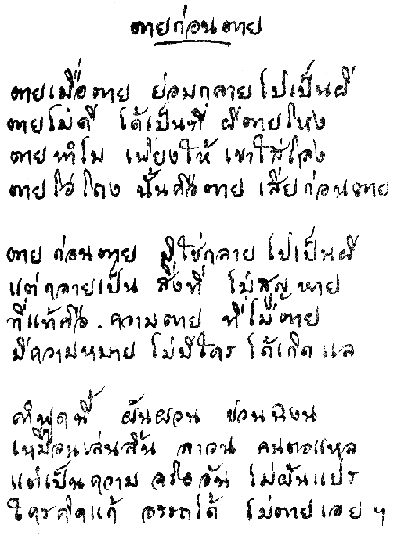 ตายก่อนตาย
ตายเมื่อตาย ย่อมกลายไปเป็นผี
ตายไม่ดี ได้เป็นที่ ผีตายโหง
ตายทำไม เพียงให้ เขาใส่โลง
ตายโอ่โถง นั้นคือตาย เสียก่อนตาย
ตายก่อนตาย มิใช่กลายไปเป็นผี
แต่กลายเป็น สิ่งที่ ไม่สูญหาย
ที่แท้คือ ความตาย ที่ไม่ตาย
มีความหมาย ไม่มีใคร ได้เกิดแล
คำพูดนี้ ผันผวน ชวนฉงน
เหมือนเล่นลิ้น ลาวน คนตอแหล
แต่เป็นความ จริงอัน ไม่ผันแปร
ใครคิดแก้ อรรถได้ ไม่ตายเอย ฯ